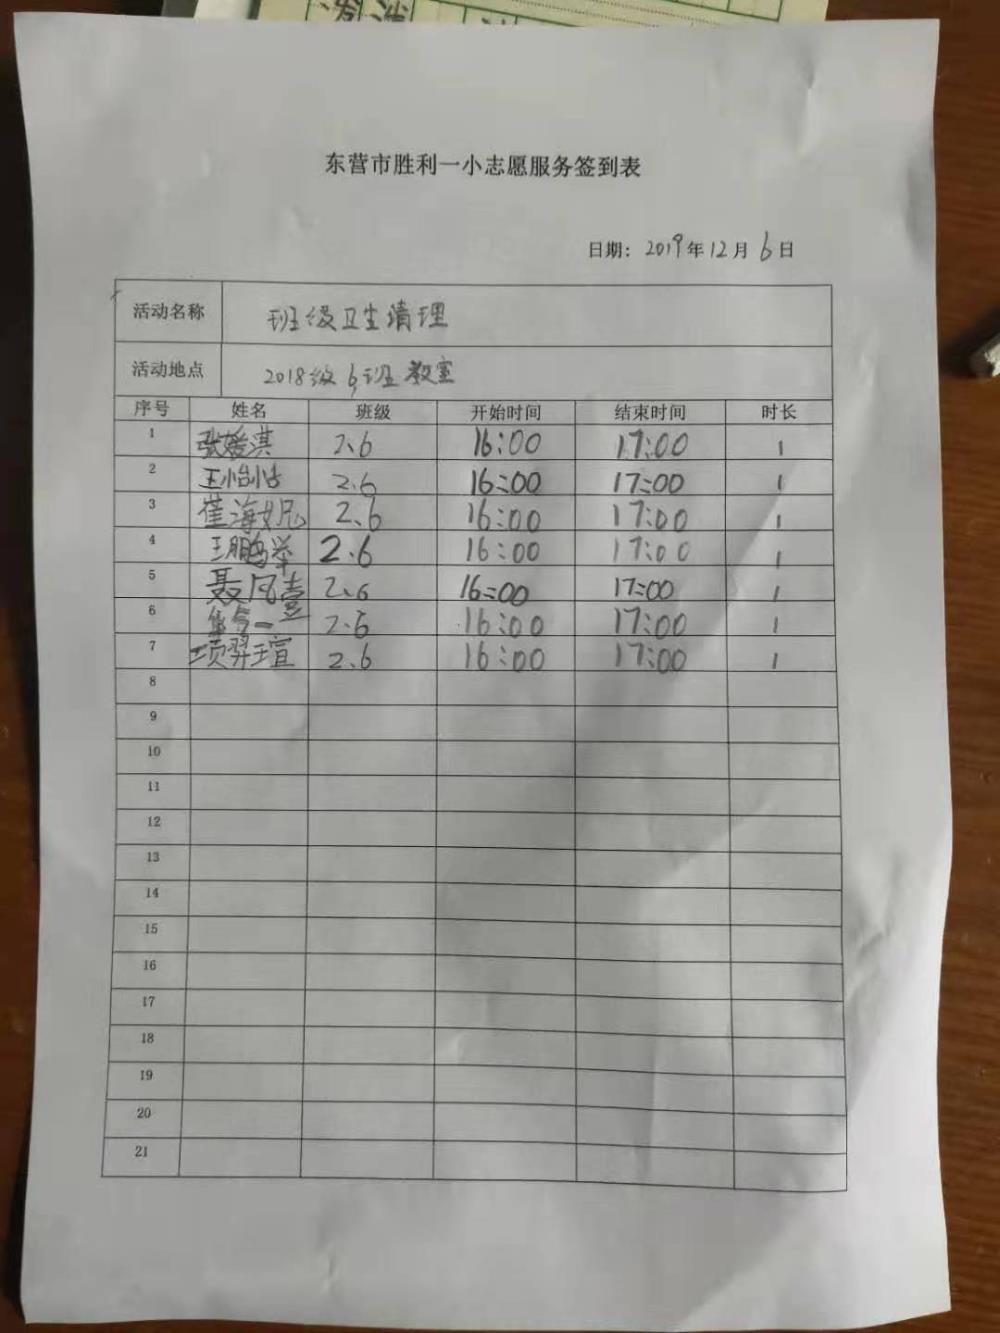 东营市胜利一小志愿服务签到表
日期: 2019年12月6日
活动名称 班级卫生清理
活动地点 2018级6班教室
序号 姓名 班级 开始时间 结束时间 时长
1 张媛淇 2.6 16:00 17:00 1
2 王怡怡 2.6 16:00 17:00 1
3 崔海妮 2.6 16:00 17:00 1
4 王鹏举 2.6 16:00 17:00 1
5 聂凡壹 2.6 16:00 17:00 1
6 2.6 16:00 17:00 1
7 项羿瑄 2.6 16:00 17:00 1
8
9
10
11
12
13
14
15
16
17
18
19
20
21